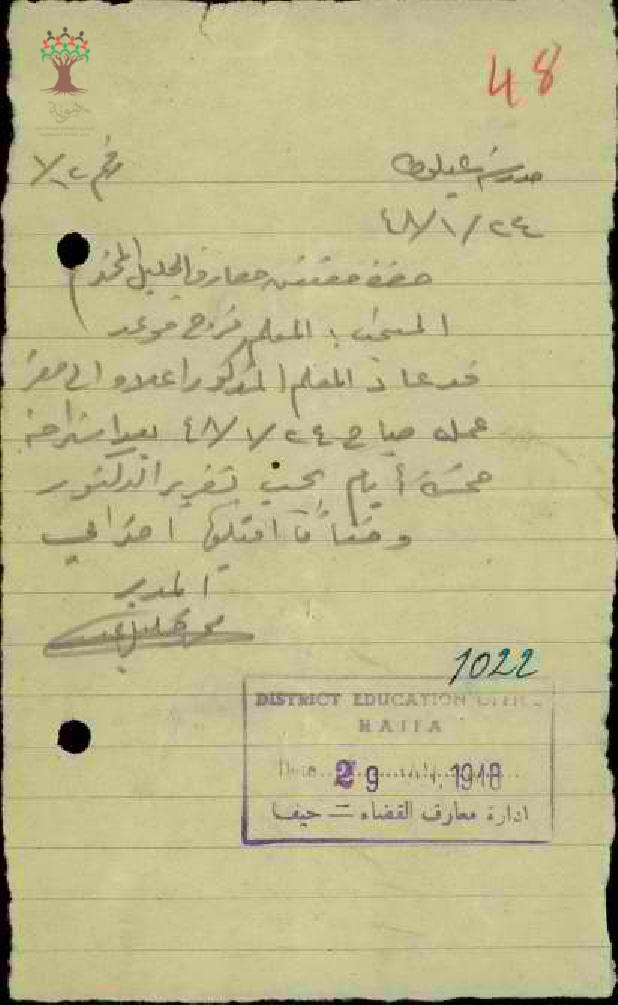 48
مدرسة عيلوط
رقم ١٢/٧
٢٤/١/٤٨
حضرة مفتش معارف الجليل المحترم
المبحث: المعلم فرح
قد عاد المعلم المذكور اعلاه الى مقر
عمله صباح ٢٤/١/٤٨ بعد استراحة
خمسة أيام بحسب تقرير الدكتور
وختاماً اقبلوا احترامي
المدير
1022
DISTRICT EDUCATION OFFICE
HAIFA
Date 29 1948
ادارة معارف القضاء – حيفا